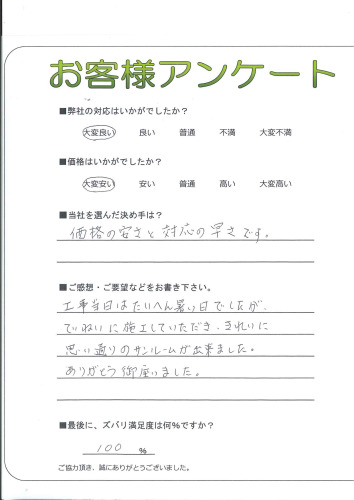 お客様アンケート
■弊社の対応はいかがでしたか?
大変良い 良い 普通 不満 大変不満
■価格はいかがでしたか?
大変安い 安い 普通 高い 大変高い
■当社を選んだ決め手は?
価格の安さと対応の早さです。
■ご感想・ご要望などをお書き下さい。
工事当日はたいへん暑い日でしたが、
ていねいに施工していただき、きれいに
思い通りのサンルームが出来ました。
ありがとう御座いました。
■最後に、ズバリ満足度は何%ですか?
100 %
ご協力頂き、誠にありがとうございました。